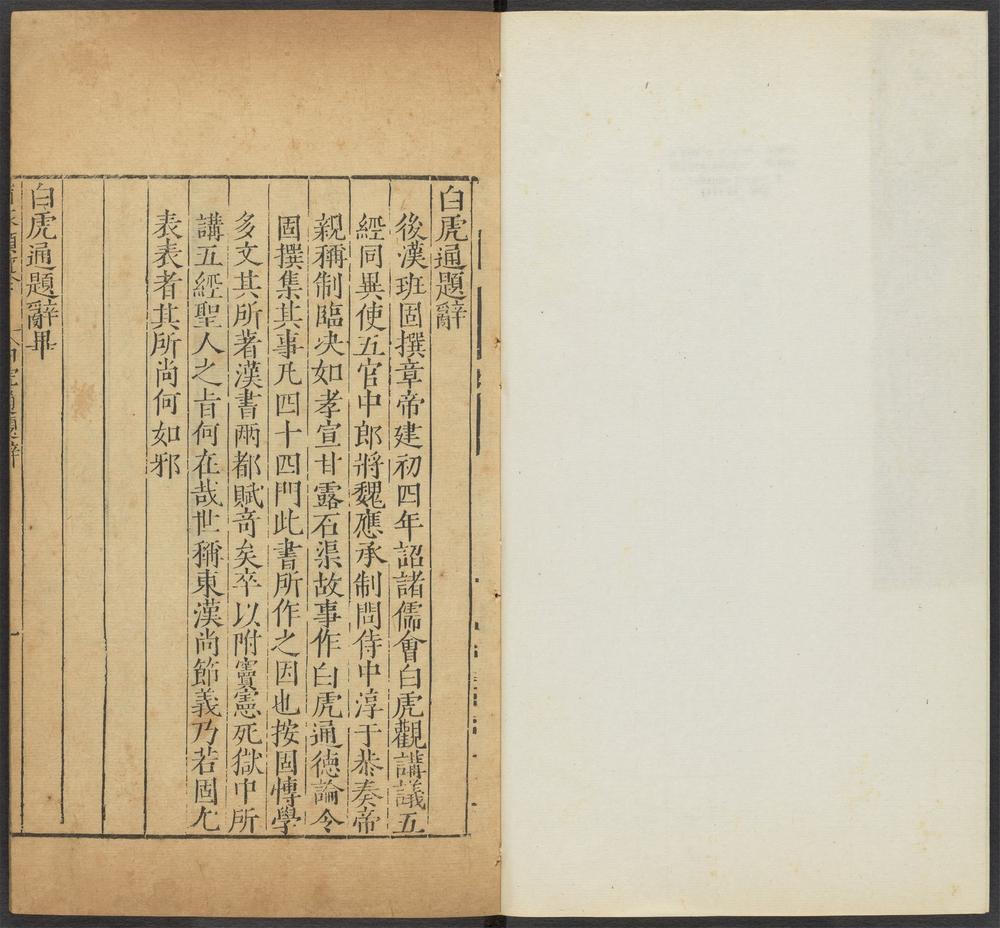 白虎通題辭
後漢班固撰章帝建初四年詔諸儒會白虎觀講議五
經同異使五官中郎將魏應承制問侍中淳于恭奏帝
親稱制臨决如孝宣甘露石渠故事作白虎通德論令
固撰集其事凡四十四門此書所作之因也按固愽學
多文其所著漢書兩都賦竒矣卒以附竇憲死獄中所
講五經聖人之㫖何在哉世稱東漢尚節義乃若固尤
表表者其所尚何如邪
白虎通題辭畢